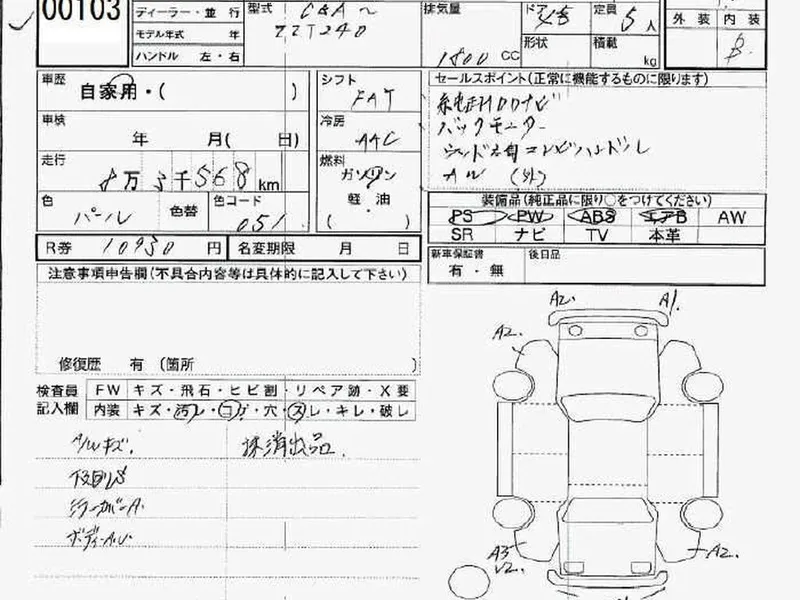 00103
ディーラー・並 行 型式 排気量 ドア 定員 5 人
ZZT240
モデル年式 年 形状 積載 kg 外 装 内 装
ハンドル 左・右 1800 CC B
車歴 自家用・( ) シフト FAT セールスポイント(正常に機能するものに限ります)
純正HDDナビ
車検 年 月( 日) 冷房 AAC
バックモニター
走行 8万3千568km 燃料 ガソリン 軽・油 ( )
AW (外)
色 パール 色替 色コード 051
装備品(純正品に限り○をつけてください)
PS PW ABS エアB AW
SR ナビ TV 本革
R券 10930 円 名変期限 月 日
新車保証書 有・無 後日品
注意事項申告欄(不具合内容等は具体的に記入して下さい)
修復歴 有 (箇所 )
検査員記入欄 FW キズ・飛石・ヒビ割・リペア跡・X要
内装 キズ・汚レ・コゲ・穴・スレ・キレ・破レ
A2. A1.
A2.
抹消出品.
ミラーカバーA.
ボディーA.U
A3 V2. A2.